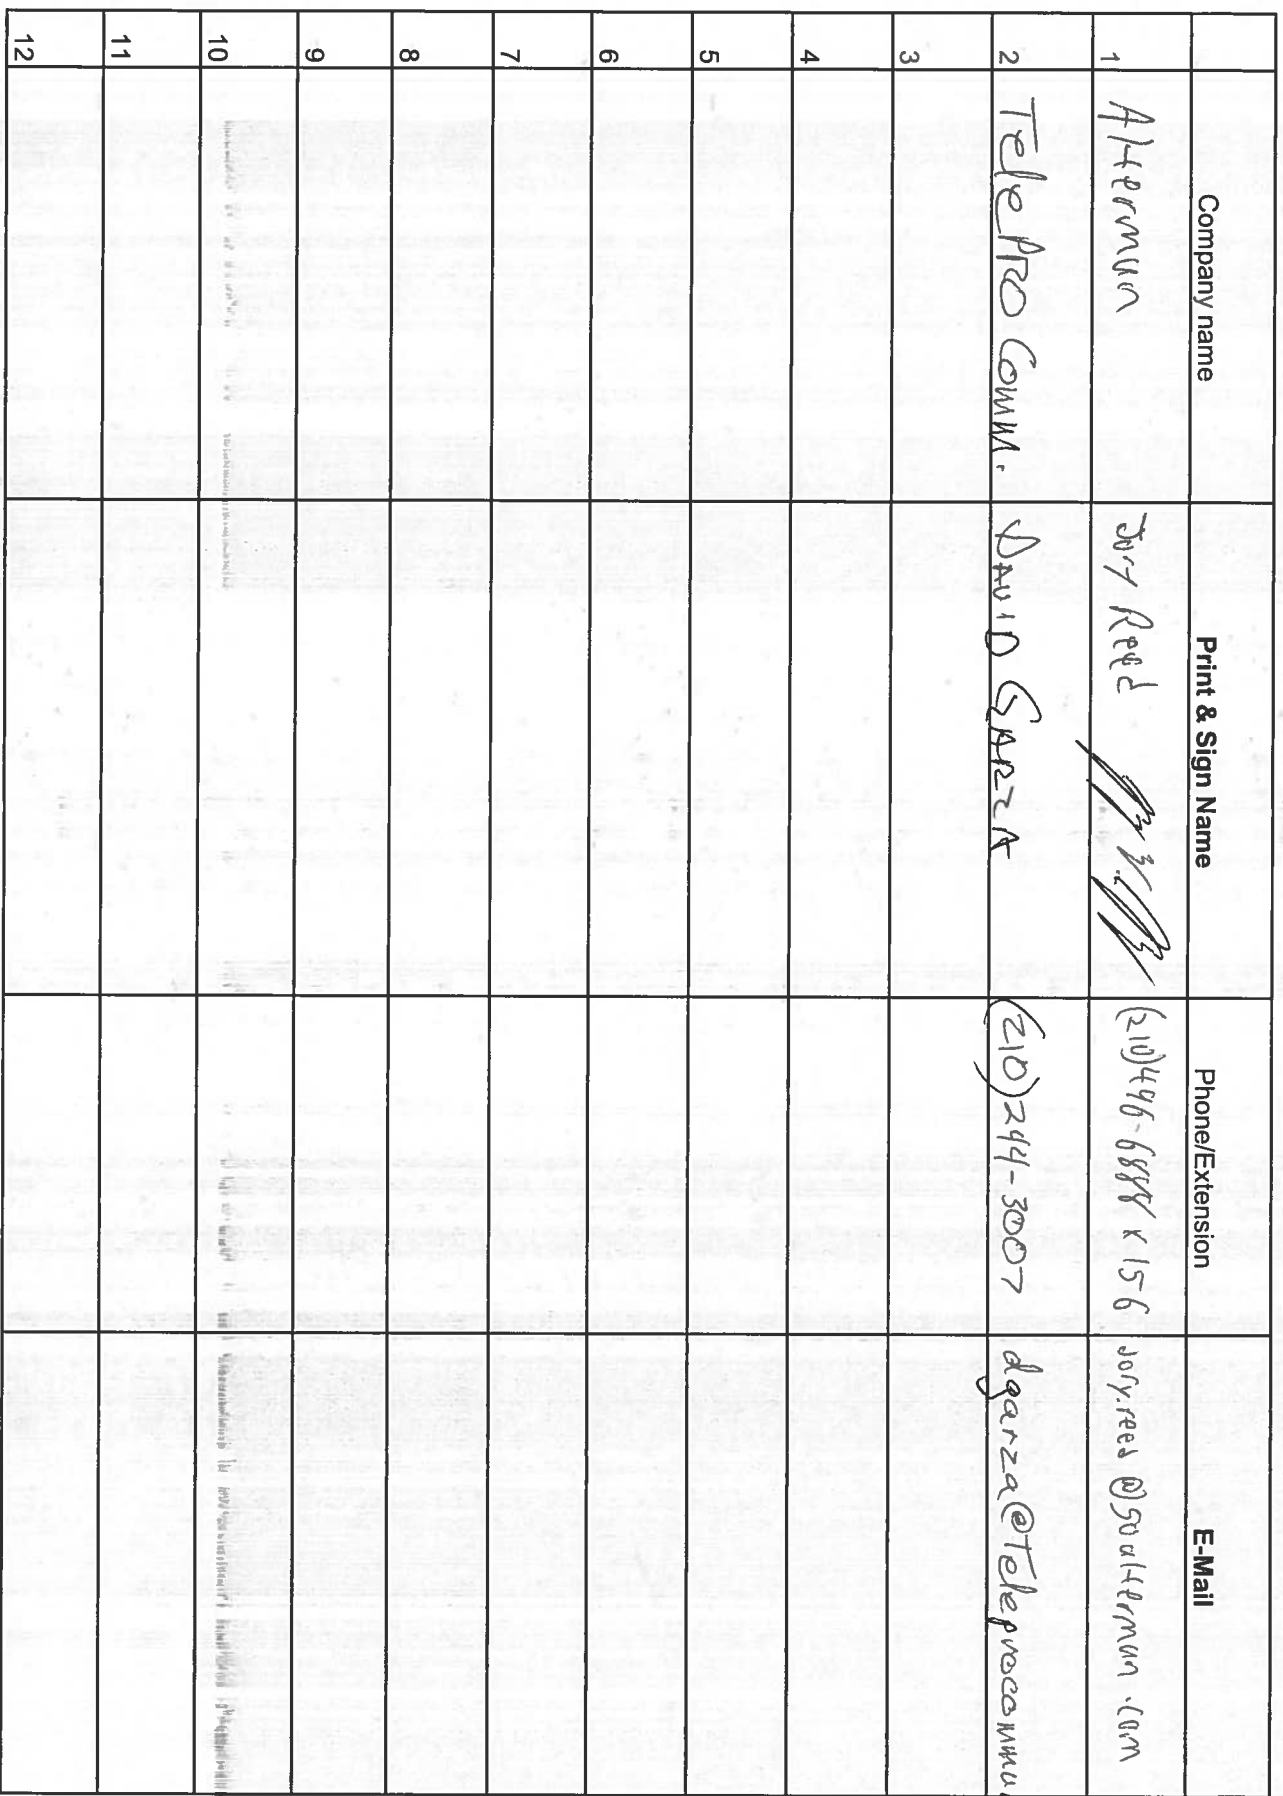 Company name Print & Sign Name Phone/Extension E-Mail
1 Alterman Jory Reed (210)496-6888 x 156 jory.reed@goalterman.com
2 TelePRO Comm. DAVID GARZA (210)244-3007 dgarza@Teleprocommu
3
4
5
6
7
8
9
10
11
12